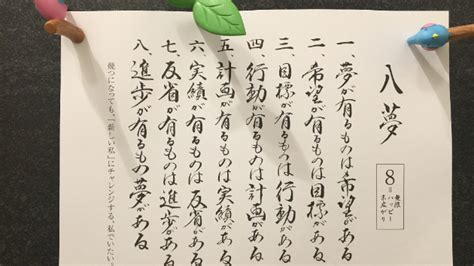 八夢
8＝無限
ハッピー
末広がり
一、夢が有るものは希望がある
二、希望が有るものは目標がある
三、目標が有るものは行動がある
四、行動が有るものは計画がある
五、計画が有るものは実績がある
六、実績が有るものは反省がある
七、反省が有るものは進歩がある
八、進歩が有るもの夢がある
幾つになっても、「新しい私」にチャレンジする、私でいたい。